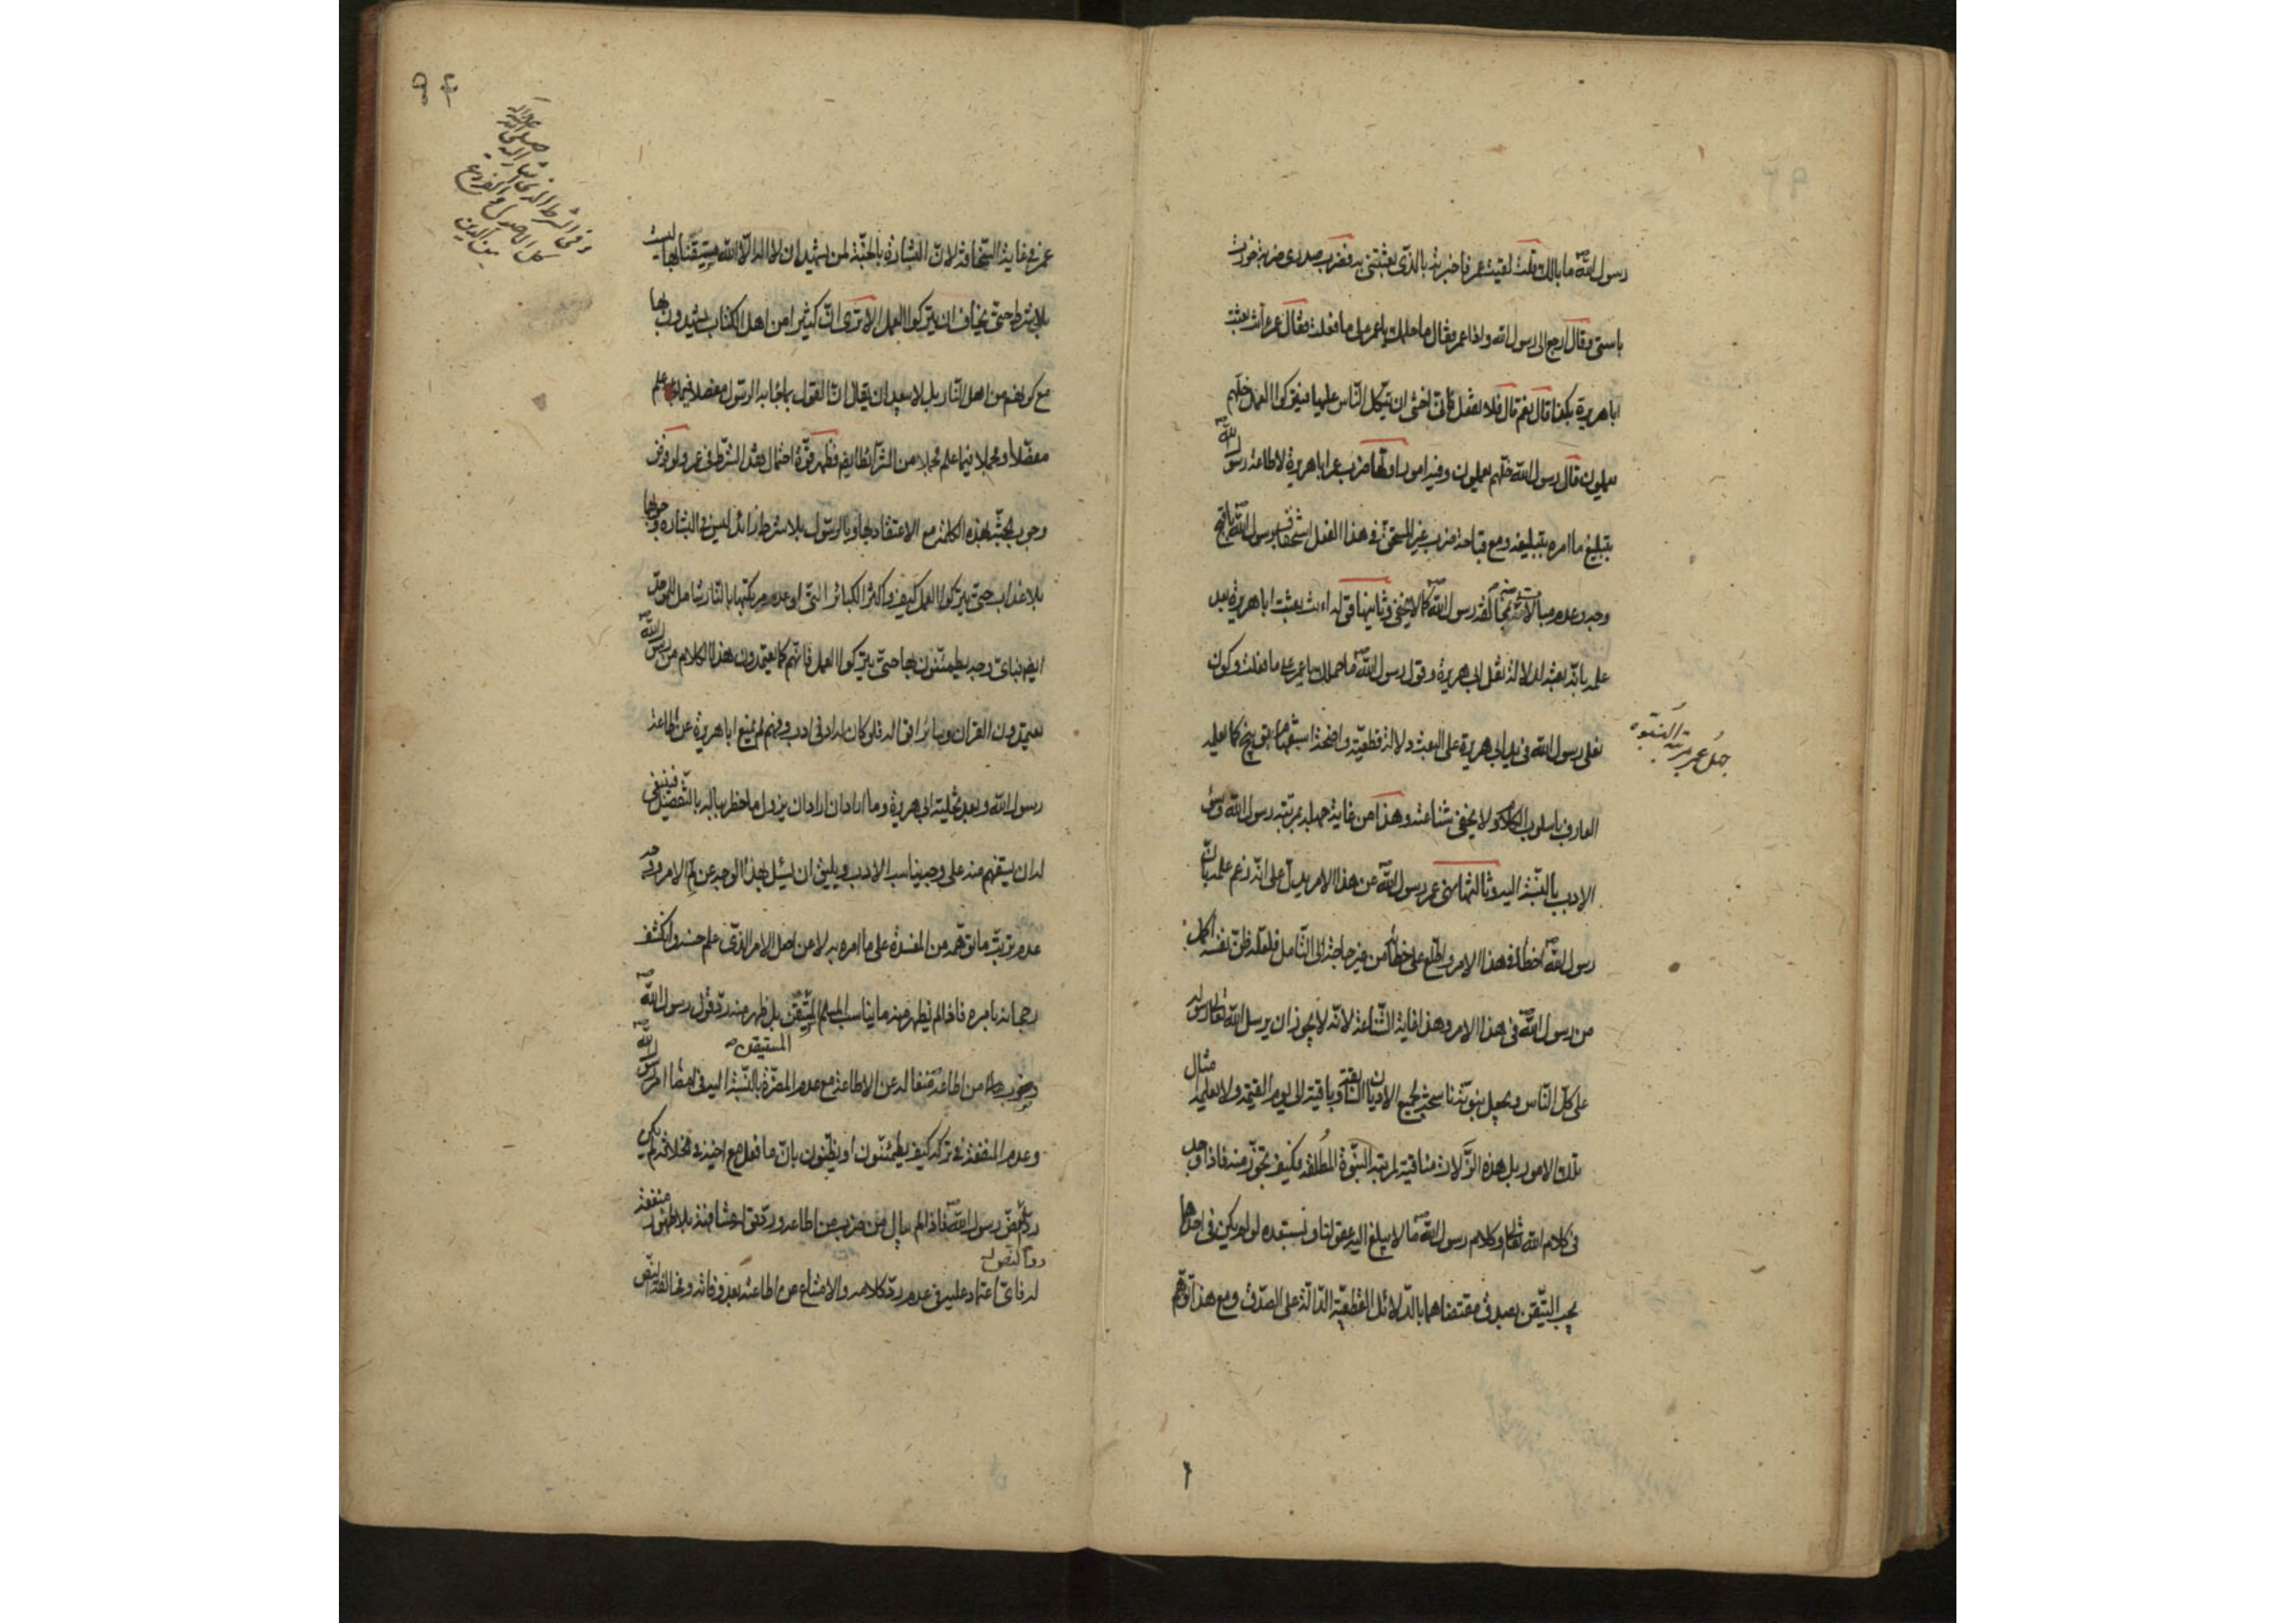 رسول اللهّ ما بالك قلت لقيت عمر فاخبرته بالذى بعثتنى به فضرب صدرى ضربة خررت
باستى وقال ارجع الى رسول الله واذا عمر فقال ما حملك يا عمر على ما فعلت فقال عمر أنت بعثت
ابا هريرة بكذا قال نعم قال فلا تفعل فانى اخشى ان يتكل الناس عليها فيتركوا العمل خلهم
يعملون قال رسول الله خلهم يعملون وفيه امور اولها ضرب عمر ابا هريرة لاطاعة رسول الله
بتبليغ ما امره بتبليغه ومع قباحة ضرب غير المستحق فى هذا الفعل استخفاف برسول الله باقبح
وجه وعدم مبالاته بمخالفة رسول الله كما لا يخفى وثانيها قوله اءنت بعثت ابا هريرة بعد
علمه بانه بعثه لدلالة نعل ابى هريرة وقول رسول الله ما حملك يا عمر على ما فعلت وكون
نعلى رسول الله فى يد ابى هريرة على البعث دلالة قطعية واضحة استفهام توبيخ كما يعلمه
العارف باسلوب الكلام ولا يخفى شناعته وهذا من غاية جهله بمرتبة رسول الله وسوء
الادب بالنسبة اليه وثالثها نهى عمر رسول الله عن هذا الامر يدل على انه زعم علمه بان
رسول الله اخطأ فى هذا الامر واطلع على خطأه من غير حاجة الى التأمل فلعله ظن نفسه اكمل
من رسول الله فى هذا الامر وهذا غاية الشناعة لانه لا يجوز ان يرسل الله تعالى رسوله
على كل الناس ويجعل نبوته ناسخة لجميع الاديان السابقة وباقية الى يوم القيمة ولا يعلمه مثال
تلك الامور بل هذه الزلات منافية لمرتبة النبوة المطلقة فكيف تجوز منه فاذا وجد
فى كلام الله تعالى وكلام رسول الله ما لا يبلغ اليه عقولنا ونستبعده لو لم يكن فى احدهما
يجب التيقن بصدق مقتضاهما بالدلائل القطعية الدالة على الصدق ومع هذا توهم
جهل عمر بمرتبة النبوة
عمر فى غاية السخافة لان البشارة بالجنة لمن يشهد ان لا اله الا الله مستيقنا بها ليست
بلا شرط حتى يخاف ان يتركوا العمل الا ترى ان كثيرا من اهل الكتاب يشهدون بها
مع كونهم من اهل النار بل لا يبعد ان يقال ان القول بما جاء به الرسول مفصلا فيما علم
مفصلا ومجملا فيما علم مجملا من الشرائط ايضا فظهر قوة احتمال بعد الشرط فى عمر ولو فرض
وجوب الجنة بهذه الكلمة مع الاعتقاد بها وبالرسول بلا شرط زائد ليس فى البشارة وجوبها
بلا عذاب حتى يتركوا العمل كيف واكثر الكبائر التى اوعد مرتكبها بالنار شامل للموحد
ايضا فباى وجه يطمئنون بها حتى يتركوا العمل فانهم كما يعتمدون بهذا الكلام من رسول الله
يعتمدون القران وسائر اقواله فلو كان له ادنى ادب وفهم لم يمنع ابا هريرة عن اطاعة
رسول الله وبعد تخليته ابى هريرة وما اراد ان اراد ان يزول ما خطر بباله بالتفصيل فينبغى
له ان يستفهم منه على وجه يناسب الادب ويليق ان يسئل بهذا الوجه عن لم الامر وجه
عدم ترتب ما توهمه من المفسدة على ما امره به لا عن اصل الامر الذى علم حسنه وانكشف
رجحانه بامره فاذا لم يظهر منه ما يناسب المسلم المتيقن بل ظهر منه رد قول رسول الله
المستيقن
وضرب من اطاعه منعا له عن الاطاعة مع عدم المضرة بالنسبة اليه فى امضاء امر رسول الله
وعدم المنفعة فى تركه كيف يطمئنون او يظنون بان ما فعل مع اخيه فى الخلافة لم يكن
رد نص رسول الله فاذا لم يبال من ضرب من اطاعه ورد قوله مشافهة بلا ظهور منفعة
له فاى اعتماد عليه فى عدم رد كلامه والامتناع من اطاعته بعد وفاته ومخالفة النص